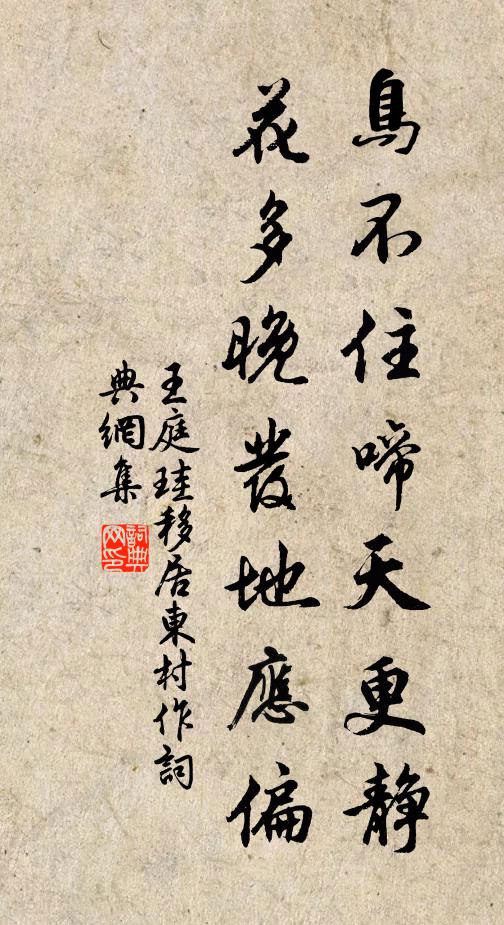 鳥不住啼天更静
花多晚發地應偏
王庭珪移居東村作詞
典網集
詞典
网印